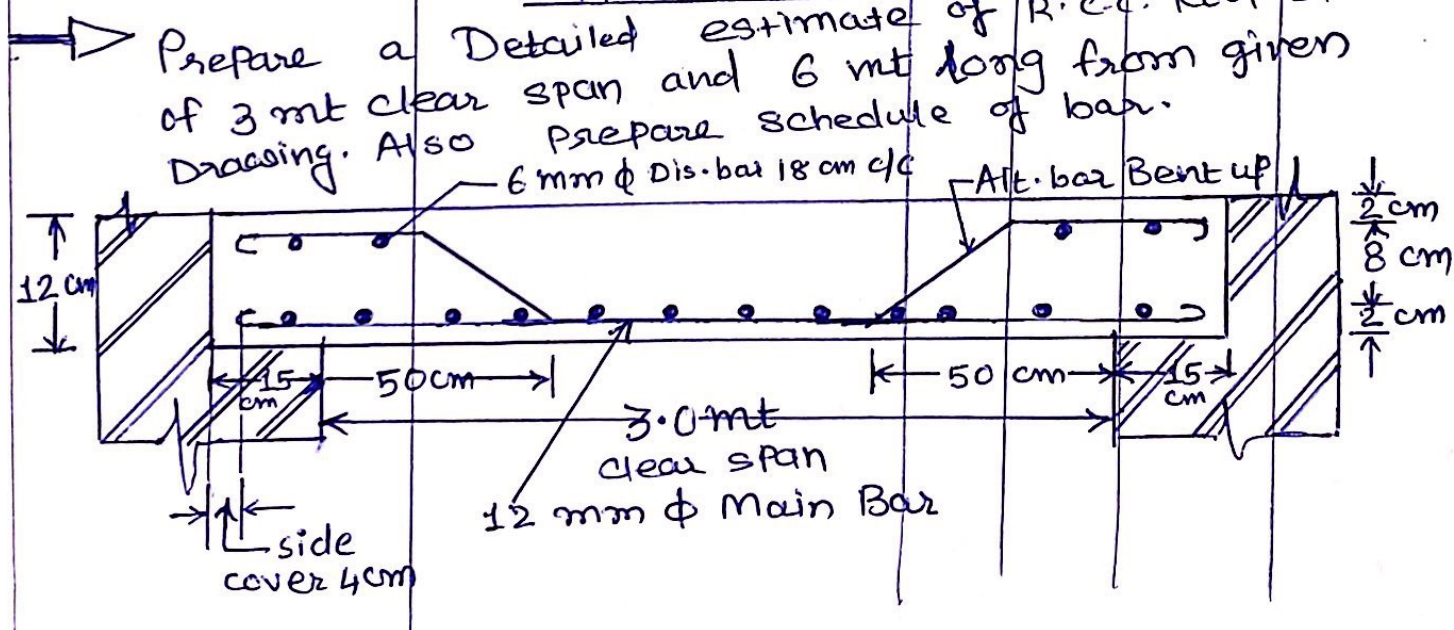 Prepare a Detailed estimate of R.C.C.
of 3 mt clear span and 6 mt long from given
Drawing. Also prepare schedule of bar.
6 mm ϕ Dis.bar 18 cm c/c
Alt. bar Bent up
12 cm
2 cm
8 cm
2 cm
15 cm
50cm
50 cm
15 cm
3.0 mt
clear span
12 mm ϕ Main Bar
side
cover 4cm